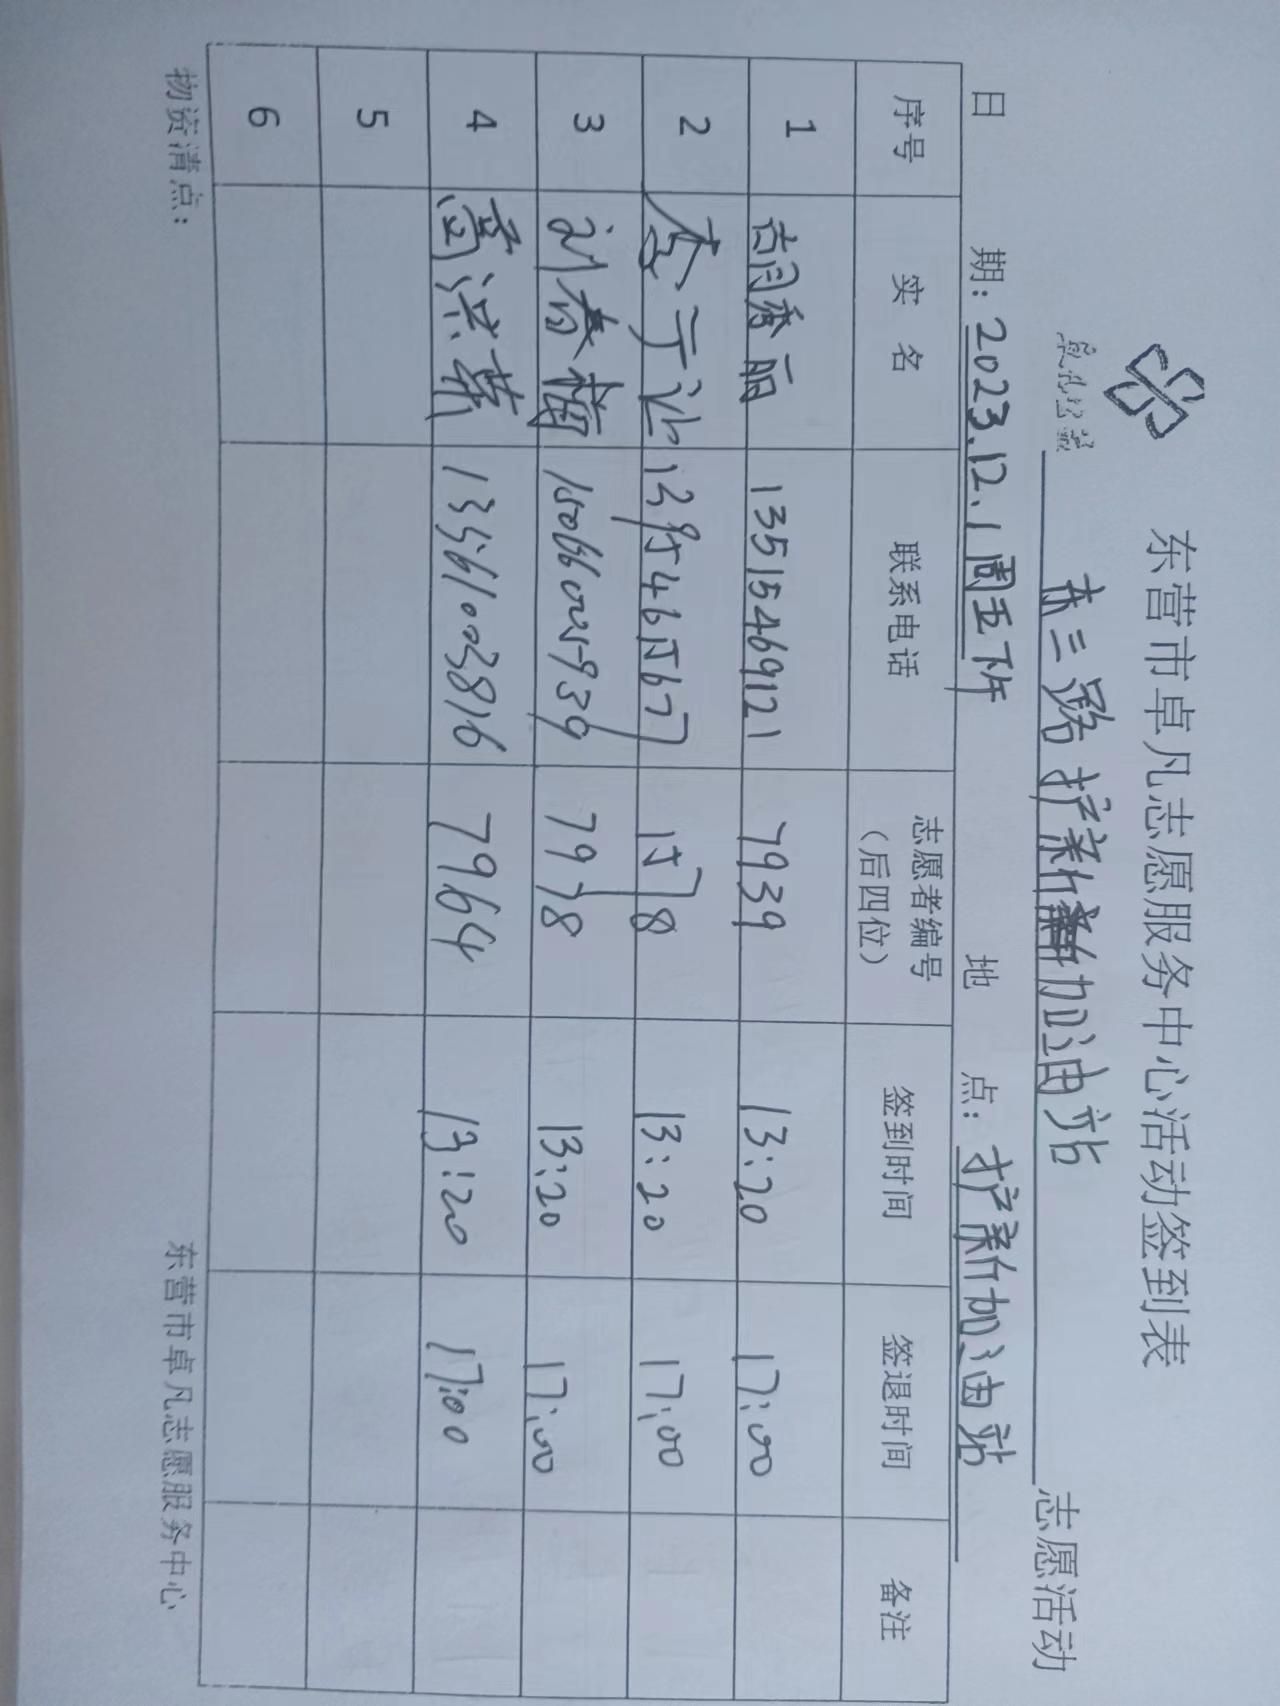 东营市卓凡志愿服务中心活动签到表
东三路护新加油站 志愿活动
日 期：2023.12.1周五下午 地 点：护新加油站
序号 实 名 联系电话 志愿者编号（后四位） 签到时间 签退时间 备注
1 香丽 13515469121 7939 13:20 17:00
2 13:20 17:00
3 刘春梅 7978 13:20 17:00
4 13561003816 7964 13:20 17:00
5
6
物资清点： 东营市卓凡志愿服务中心